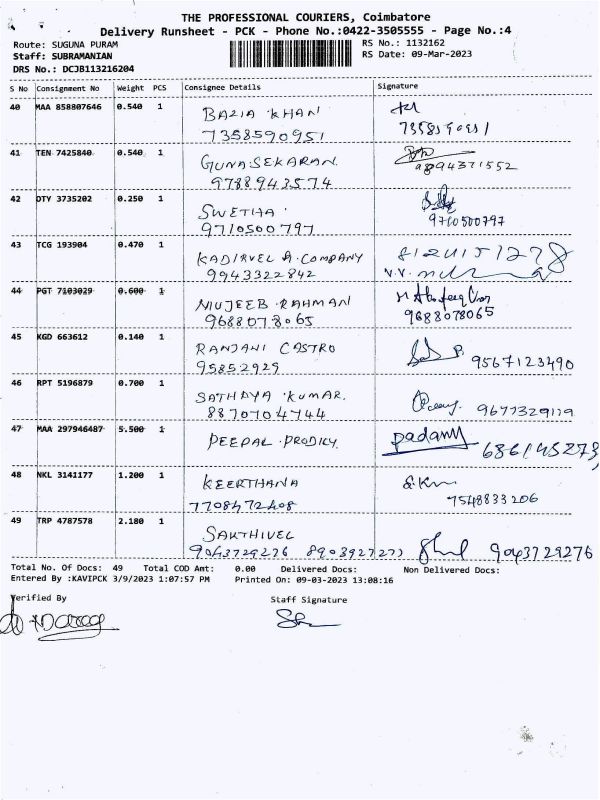 THE PROFESSIONAL COURIERS, Coimbatore
Delivery Runsheet - PCK - Phone No.:0422-3505555 - Page No.:4
Route: SUGUNA PURAM
RS No.: 1132162
Staff: SUBRAMANIAN
RS Date: 09-Mar-2023
DRS No.: DCJB113216204
S No Consignment No Weight PCS Consignee Details Signature
40 MAA 858807646 0.540 1 BAZIA KHAN
7358590951
41 TEN 7425840 0.540 1 GUNASEKARAN
9788943574
42 DTY 3735202 0.250 1 SWETHA
9710500797 9710500797
43 TCG 193904 0.470 1 KADIRVEL A. COMPANY
9943322842
44 PGT 7103029 0.600 1 MUJEEB RAHMAN
9688078065 9688078065
45 KGD 663612 0.140 1 RANJANI CASTRO
95852929 9567123490
46 RPT 5196879 0.700 1 SATHDYA KUMAR.
8870704744
47 MAA 297946487 5.500 1 PEEPAL PRODIGY
48 NKL 3141177 1.200 1 KEERTHANA
7708472408 7548833206
49 TRP 4787578 2.180 1 SAKTHIVEL
9043729276 9043729276
Total No. Of Docs: 49 Total COD Amt: 0.00 Delivered Docs: Non Delivered Docs:
Entered By :KAVIPCK 3/9/2023 1:07:57 PM Printed On: 09-03-2023 13:08:16
Verified By Staff Signature